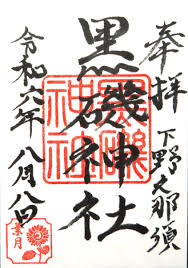 奉拝
下野之那須
黒磯神社
黒磯
神社
令和六年八月八日
葉月